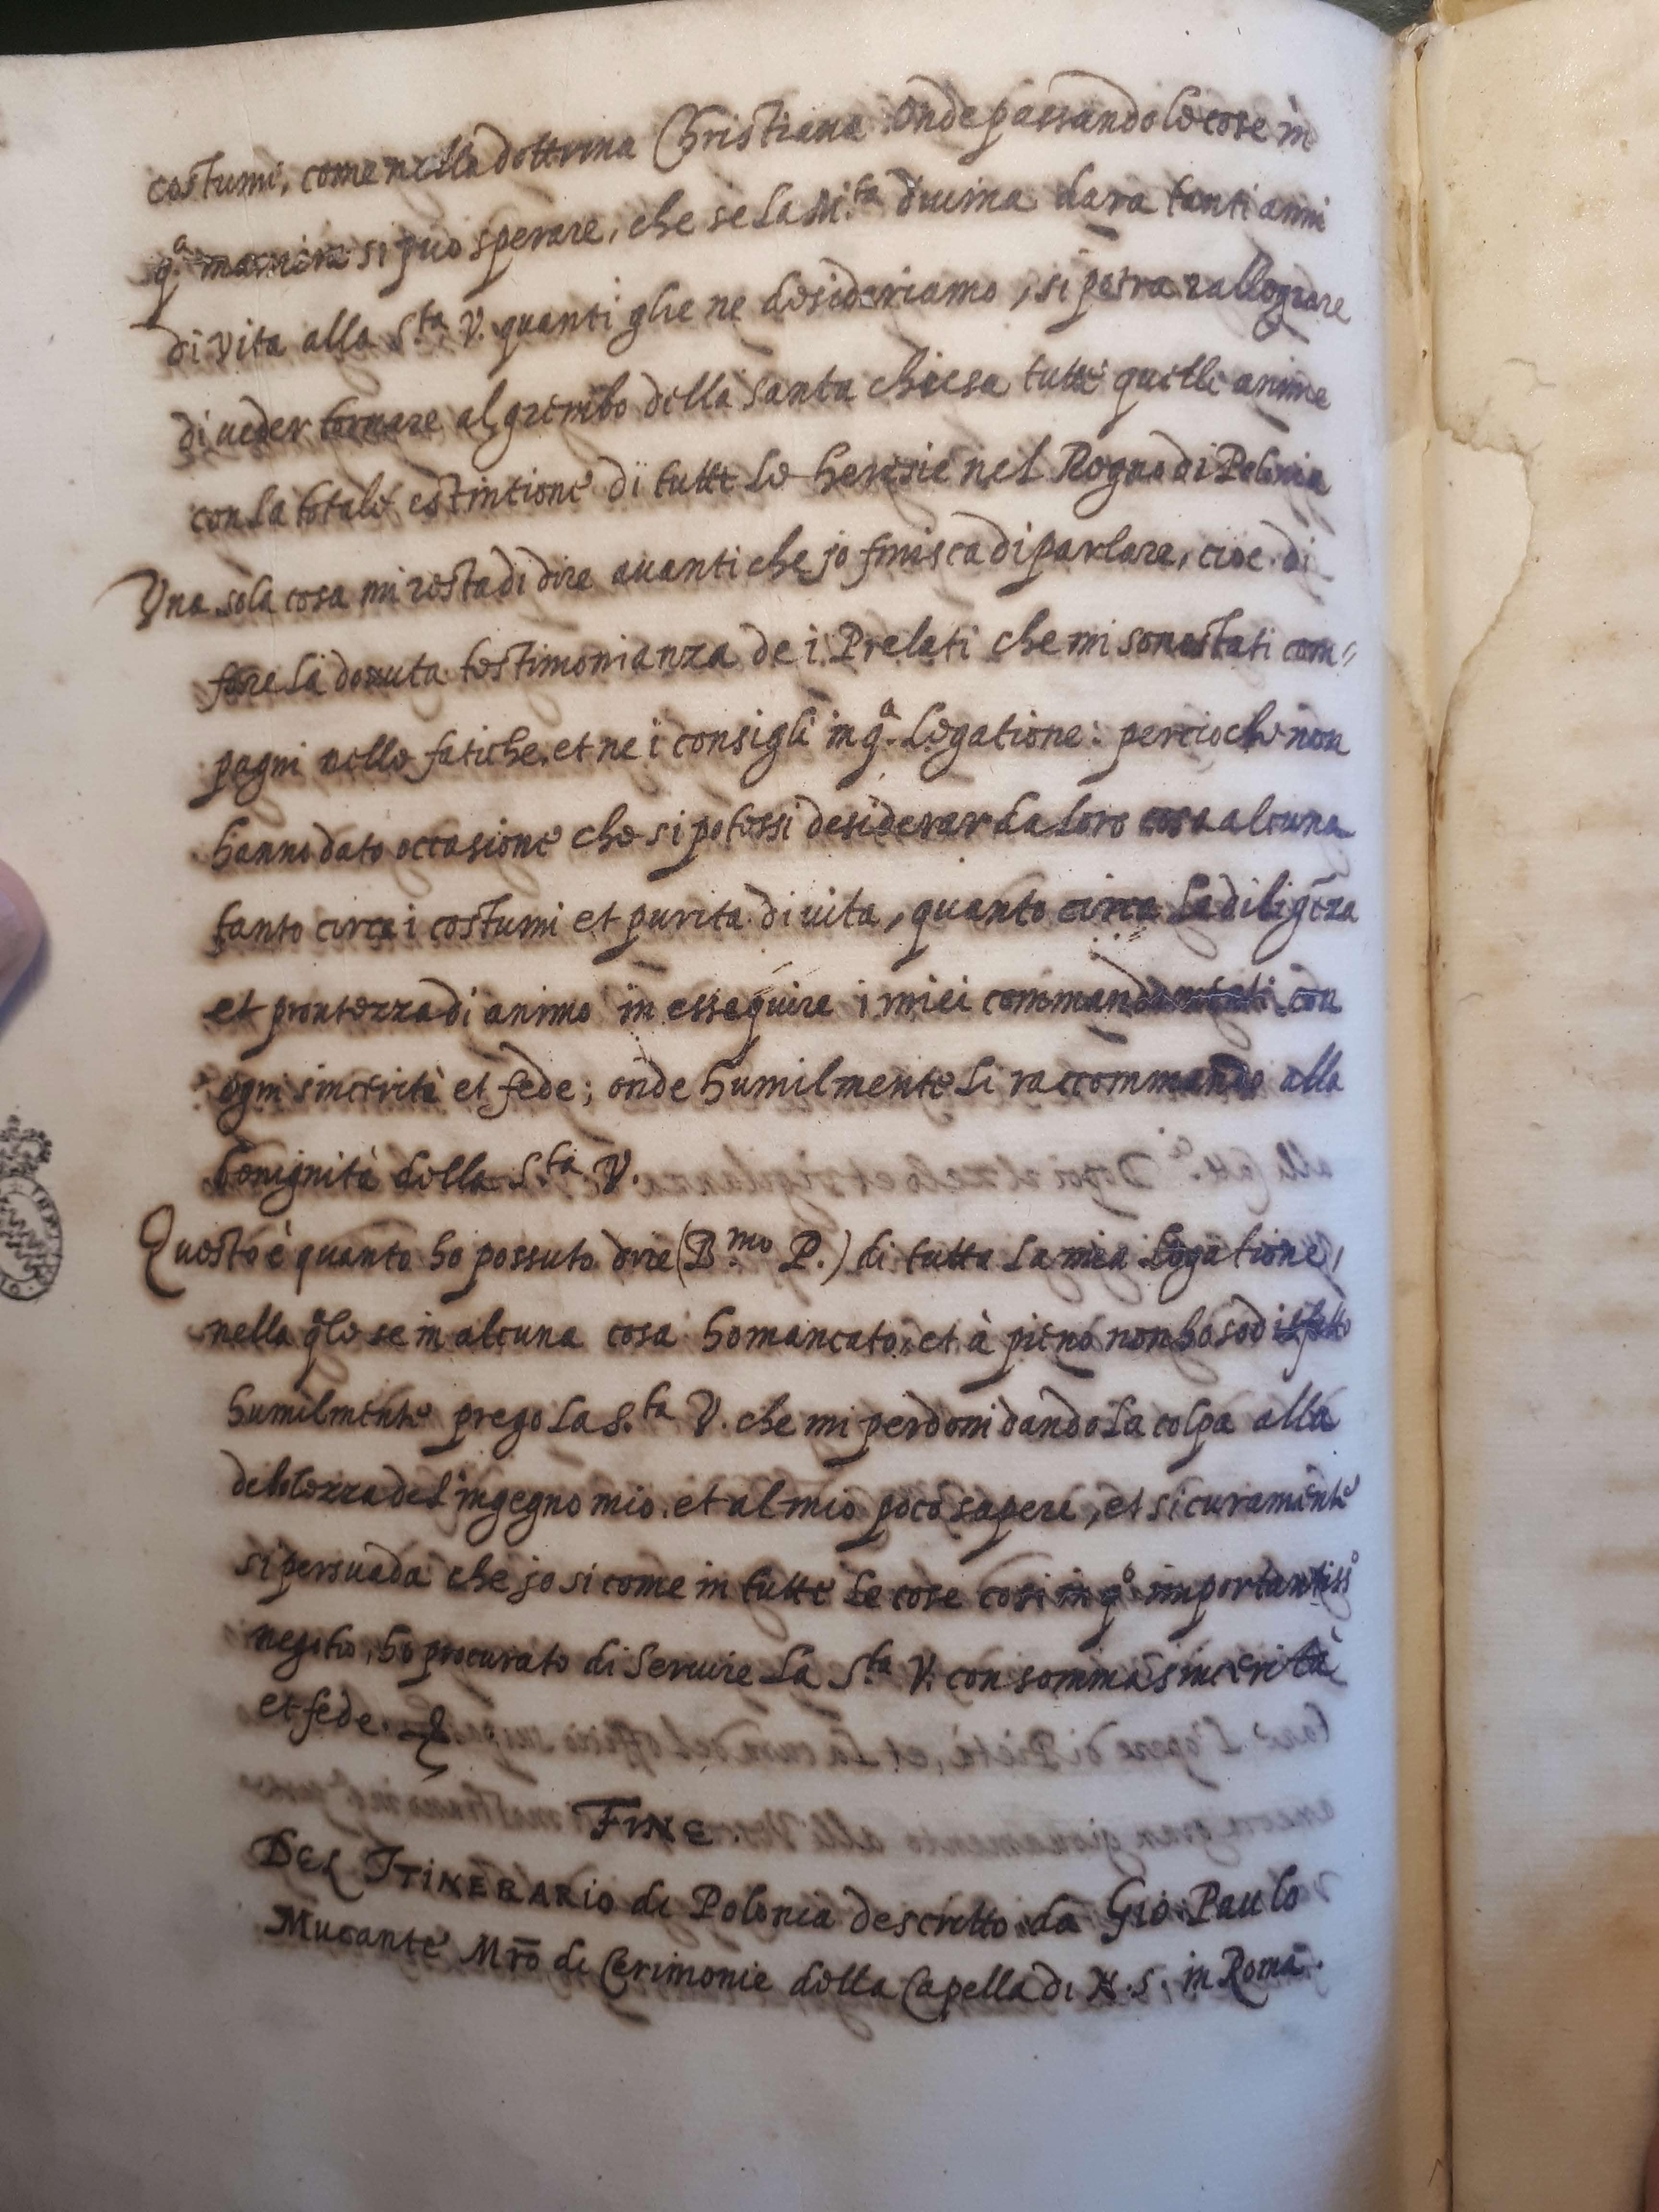 costumi, come nella dottrina Christiana. Onde passando le cose in
q.ª maniera si può sperare, che se la M.tà diuina dara tanti anni
di vita alla S.tà V. quanti glie ne desideriamo, si potra rallegrare
di ueder tornare al grembo della santa chiesa tutte quelle anime
con la totale estintione di tutte le heresie nel Regno di Polonia
Vna sola cosa mi resta di dire auanti che jo finisca di parlare, cioe di
fare la douuta testimonianza de i Prelati che mi sono stati com=
pagni nelle fatiche, et ne i consigli in q.ª Legatione: percioche non
hanno dato occasione che si potessi desiderar da loro cosa alcuna
tanto circa i costumi et purita di uita, quanto circa la diligẽza
et prontezza di animo in esseguire i miei commandamenti con
ogni sincerità et fede; onde humilmente li raccommando alla
benignità della S.tà V.
Questo è quanto ho possuto dire (B.mo P.) di tutta la mia Legatione,
nella q̃le se in alcuna cosa ho mancato, et à pieno non ho sodisfatto
humilmente prego la S.tà V. che mi perdoni dando la colpa alla
debolezza del ingegno mio, et al mio poco sapere, et sicuramente
si persuada che jo si come in tutte le cose cosi in q.º importantiss.º
negotio, ho procurato di seruire la S.tà V. con somma sincerità
et fede.
FINE.
DEL ITINERARIO di Polonia descritto da Gio. Paulo
Mucante Mr̃o di Cerimonie della Capella di N.S. in Roma.